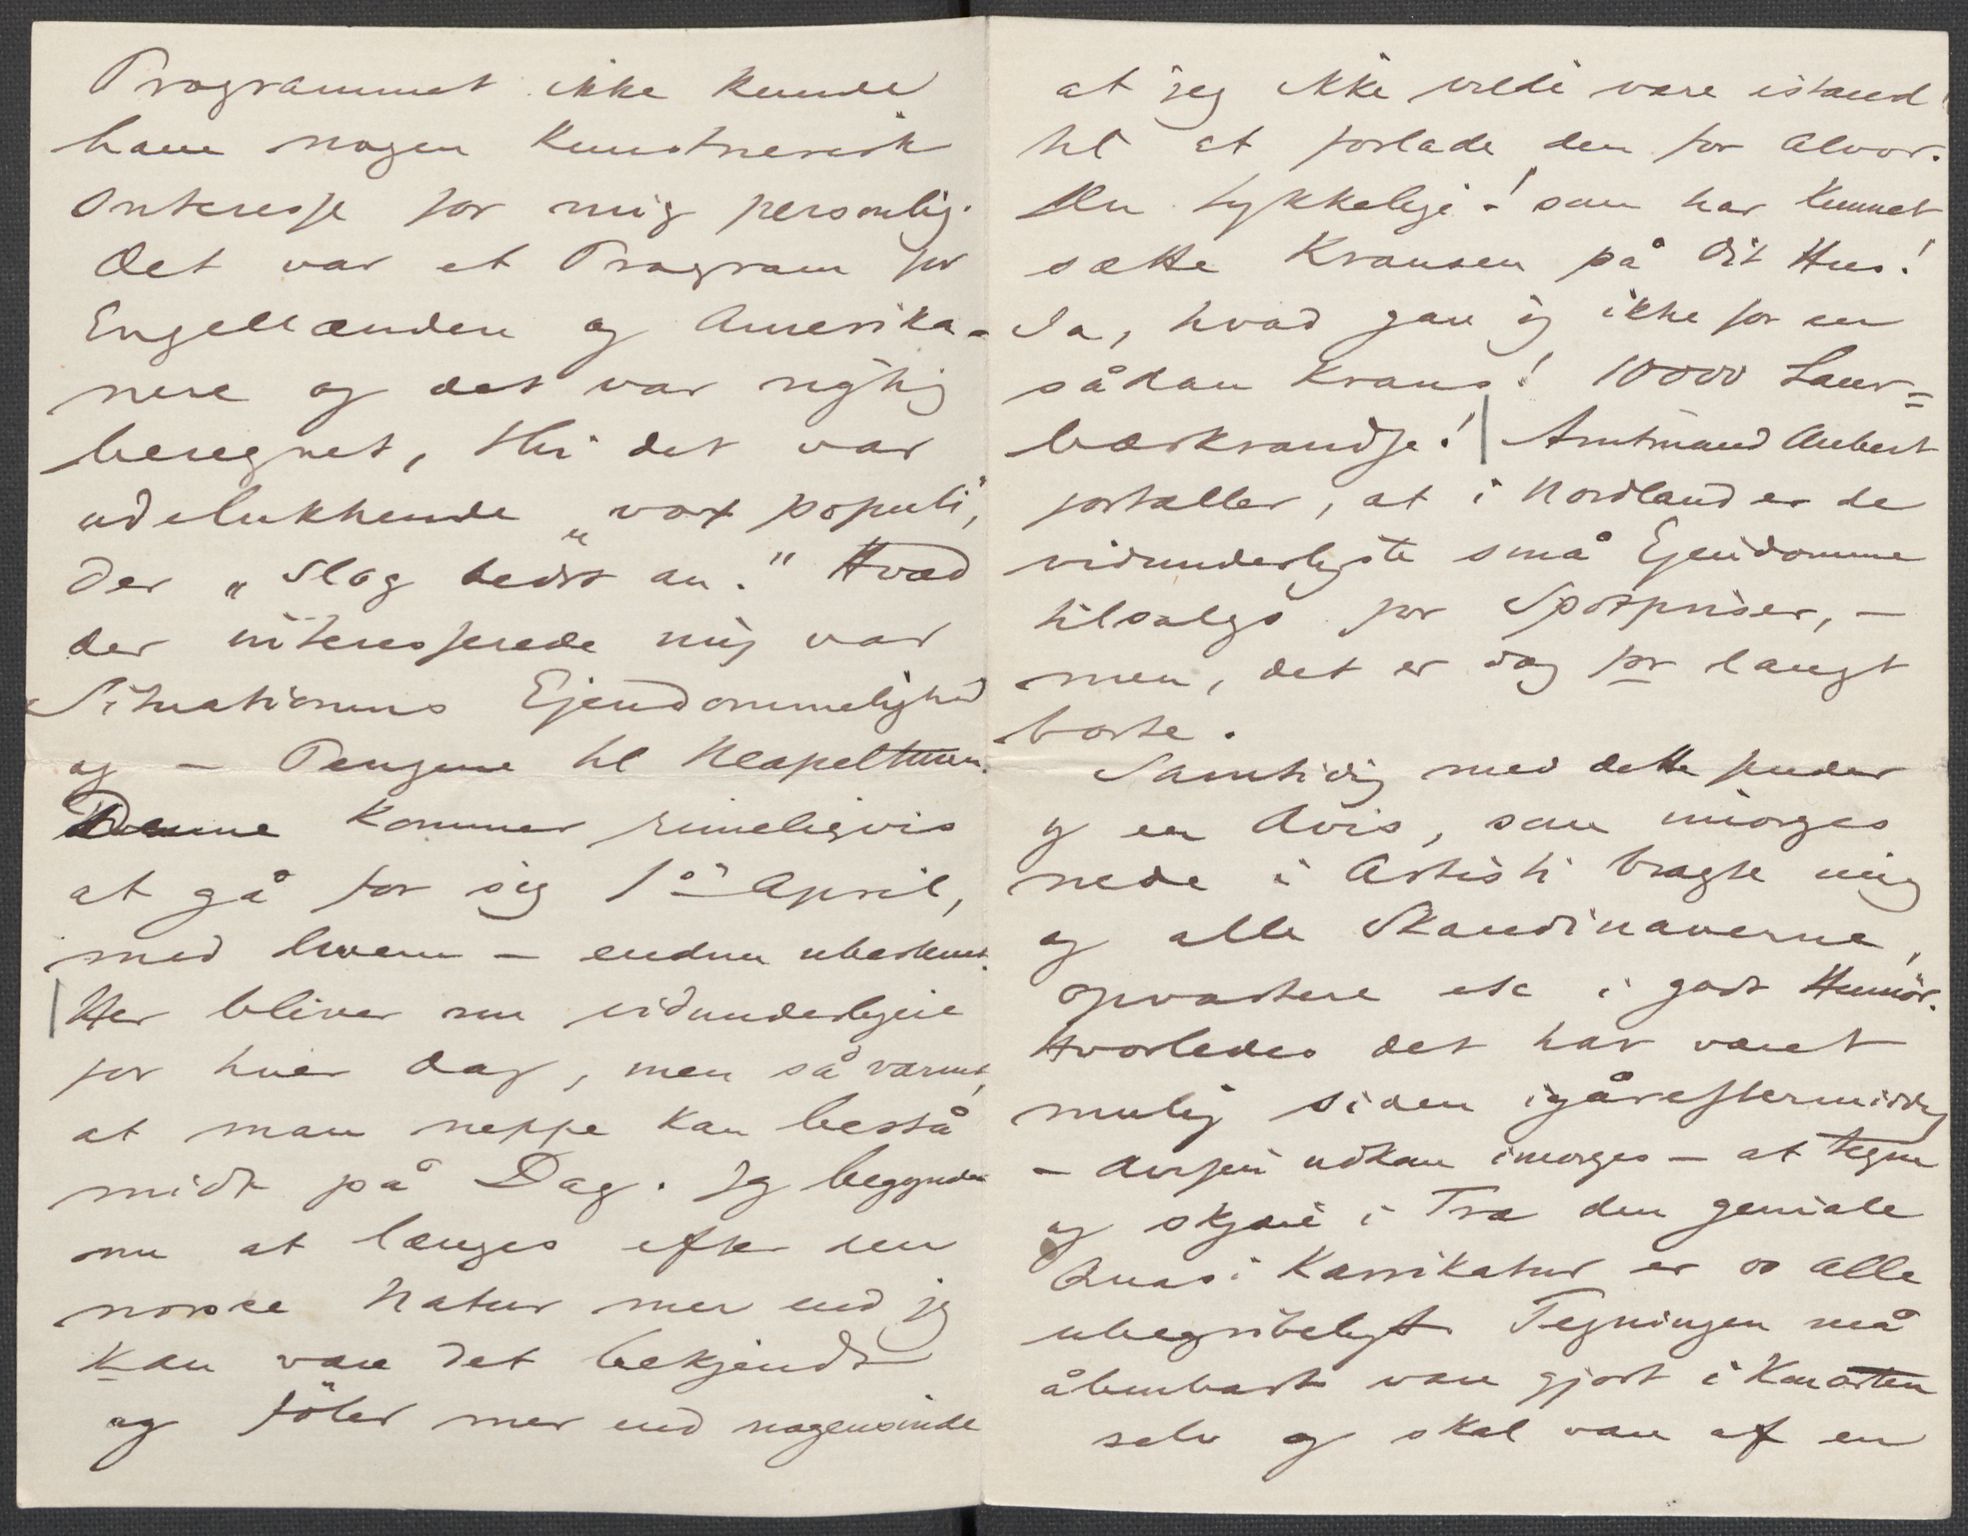 Programmet ikke kunde
have nogen Kunstnerisk
Interesse for mig personlig.
Det var et Program for
Engellænden og Amerika-
nere og det var rigtig
beregnet, thi det var
udelukkende „vox populi",
der „slog bedst an." Hvad
der interesserede mig var
Situationens Ejendommelighed
og – Pengene til Neapelturen.
Denne kommer rimeligvis
at gå for sig 1ste April,
med hvem – endnu ubestemt.
Her bliver nu vidunderligere
for hver Dag, men så varmt,
at man neppe kan bestå
midt på Dag. Jeg begynder
nu at længes efter den
norske Natur mer end jeg
kan være det bekjendt
og föler mer end nogensinde
at jeg ikke vilde være istand
til at forlade den for Alvor.
Du Lykkelige! som har kunnet
sætte Kransen på Dit Hus!
Ja, hvad gav jeg ikke for en
sådan Krans! 10000 Laur=
bærkrandse! Amtmand Aubert
fortæller, at i Nordland er de
vidunderligste små Ejendomme
tilsalgs for Spotpriser, –
men, det er dog for langt
borte.
Samtidig med dette sender
jeg en Avis, som imorges
nede i Artisti bragte mig
og alle Skandinaverne,
opvartere etc i godt Humör.
Hvorledes det har været
mulig siden igåreftermiddag
– Avisen udkom imorges – at tegne
og skjære i Træ den geniale
Quasi Karrikatur er os alle
ubegribeligt. Tegningen må
åbenbart være gjort i Koncerten
selv og skal være af en